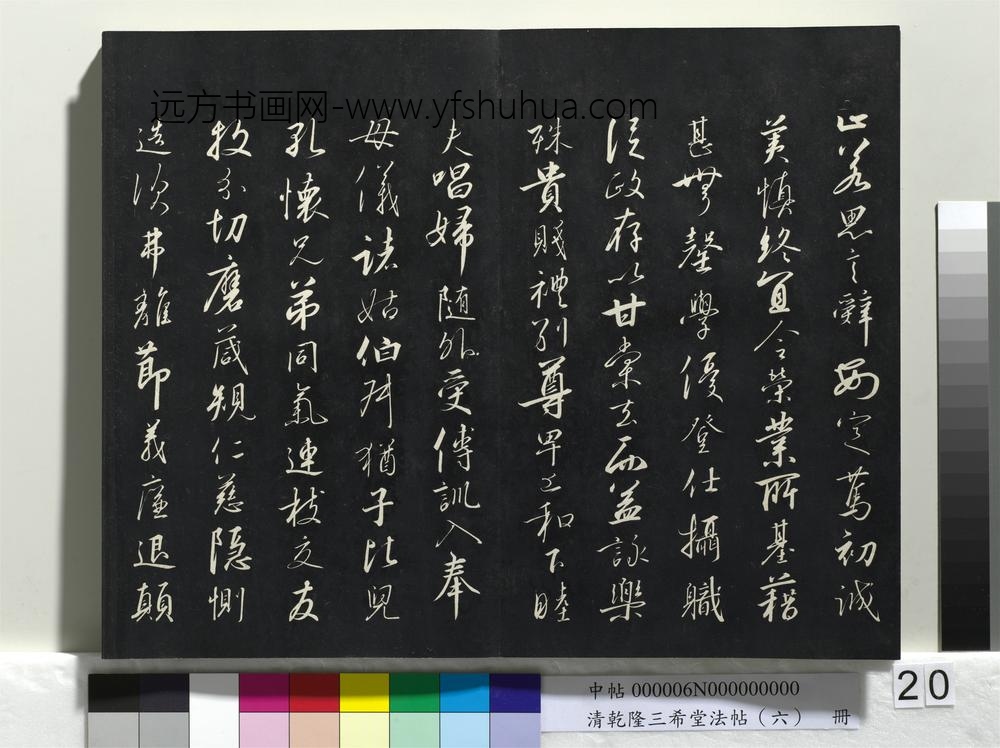 远方书画网-www.yfshuhua.com
止若思言辭安定篤初誠
美慎終宜令榮業所基藉
甚無罄學優登仕攝職
從政存以甘棠去而益詠樂
殊貴賤禮別尊卑上和下睦
夫唱婦隨外受傅訓入奉
母儀諸姑伯叔猶子比兒
孔懷兄弟同氣連枝交友
投分切磨箴規仁慈隱惻
造次弗離節義廉退顛
中帖 000006N000000000
清乾隆三希堂法帖（六） 冊
20